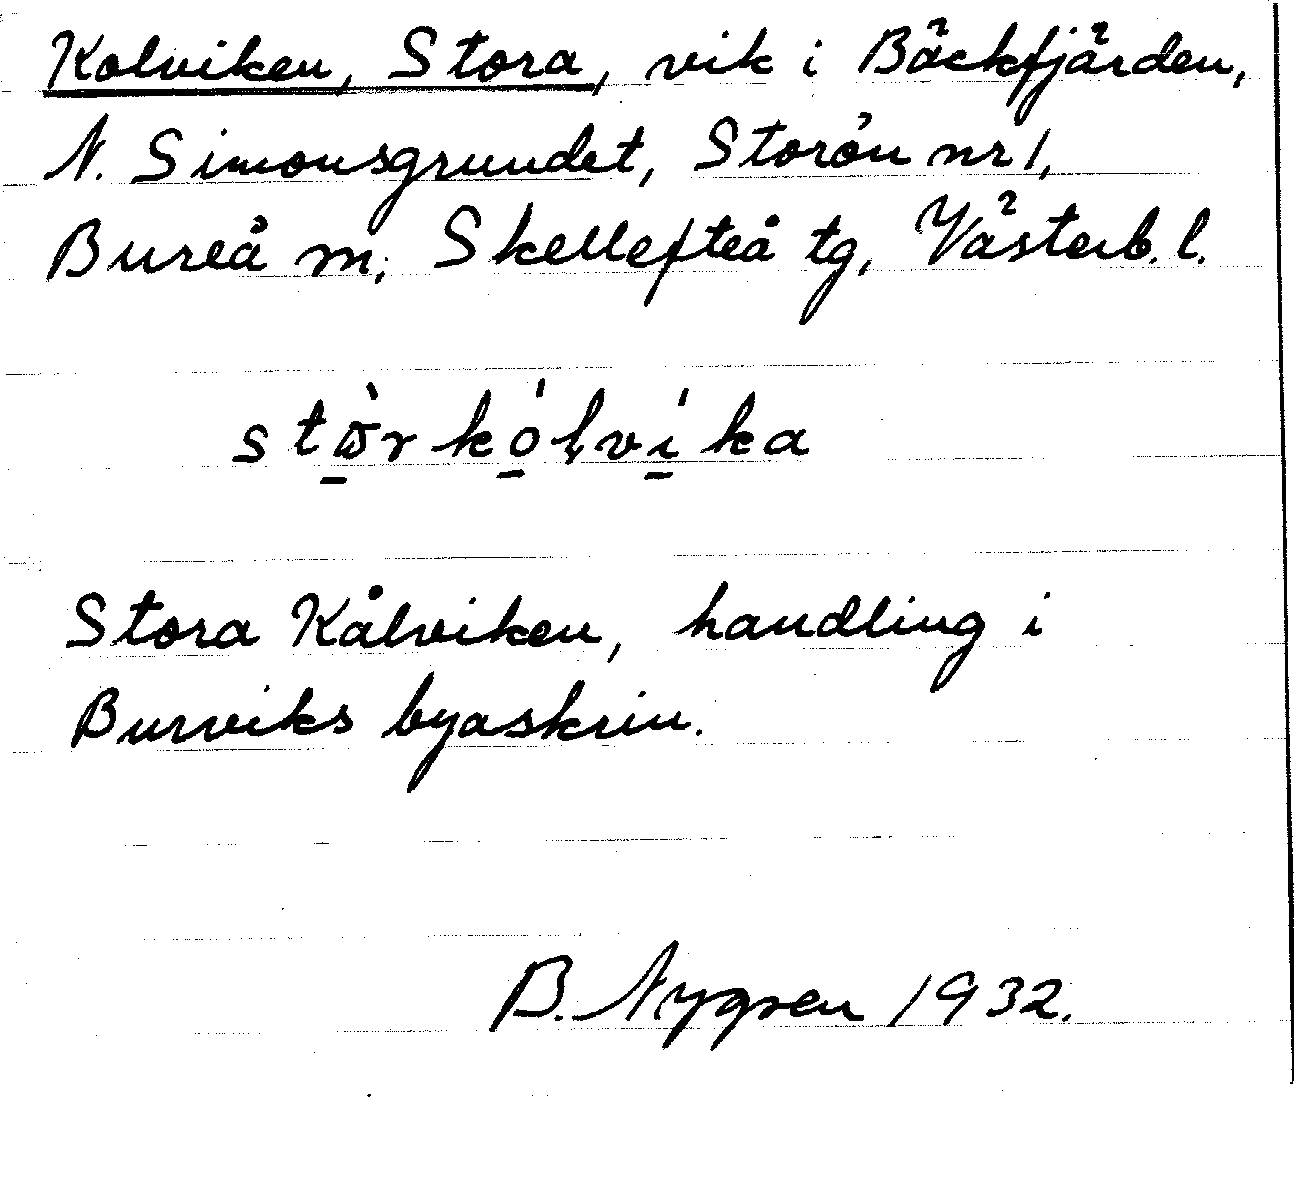 Kolviken, Stora, vik i Bäckfjärden,
N. Simonsgrundet, Storön nr 1,
Bureå m; Skellefteå tg, Västerb. l.
stòrkólvíka
Stora Kålviken, handling i
Burviks byaskrin.
B. Nygren 1932.